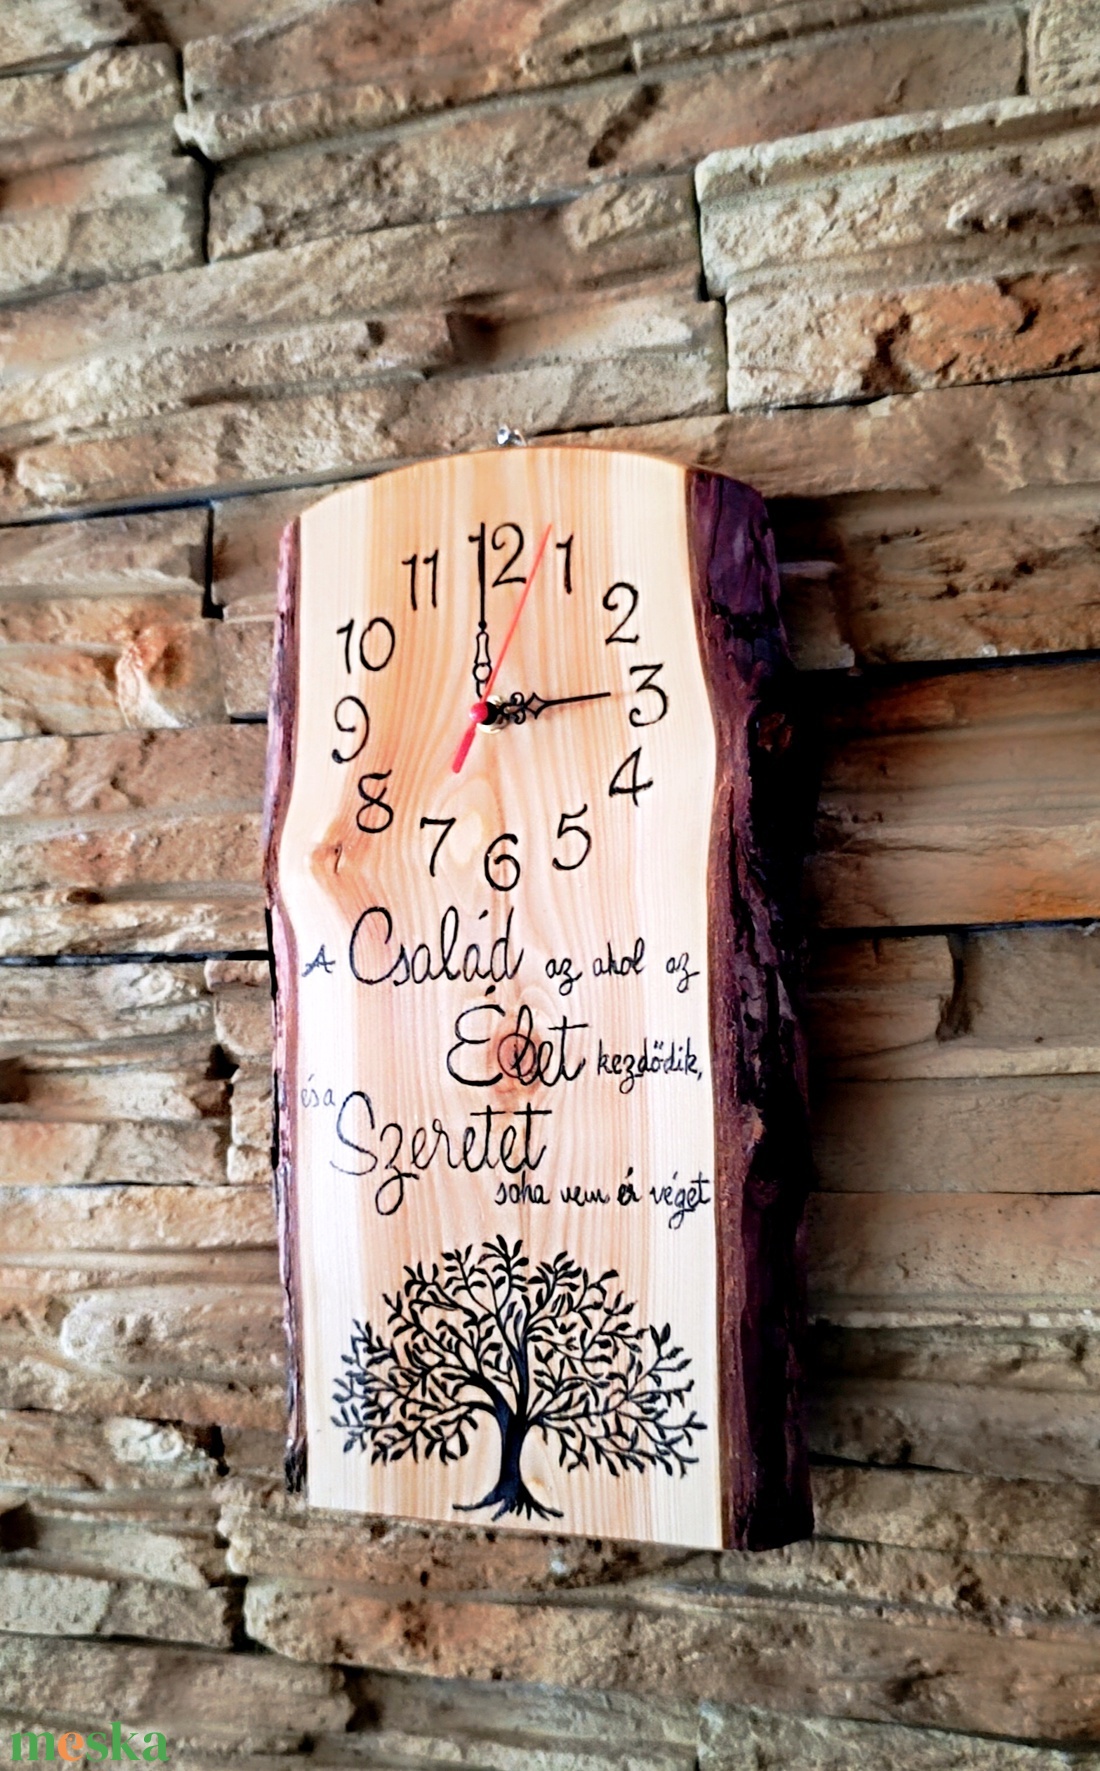 12
11 1
10 2
9 3
8 4
7 6 5
A Család az ahol az
Élet kezdődik,
és a
Szeretet
soha nem ér véget
meska